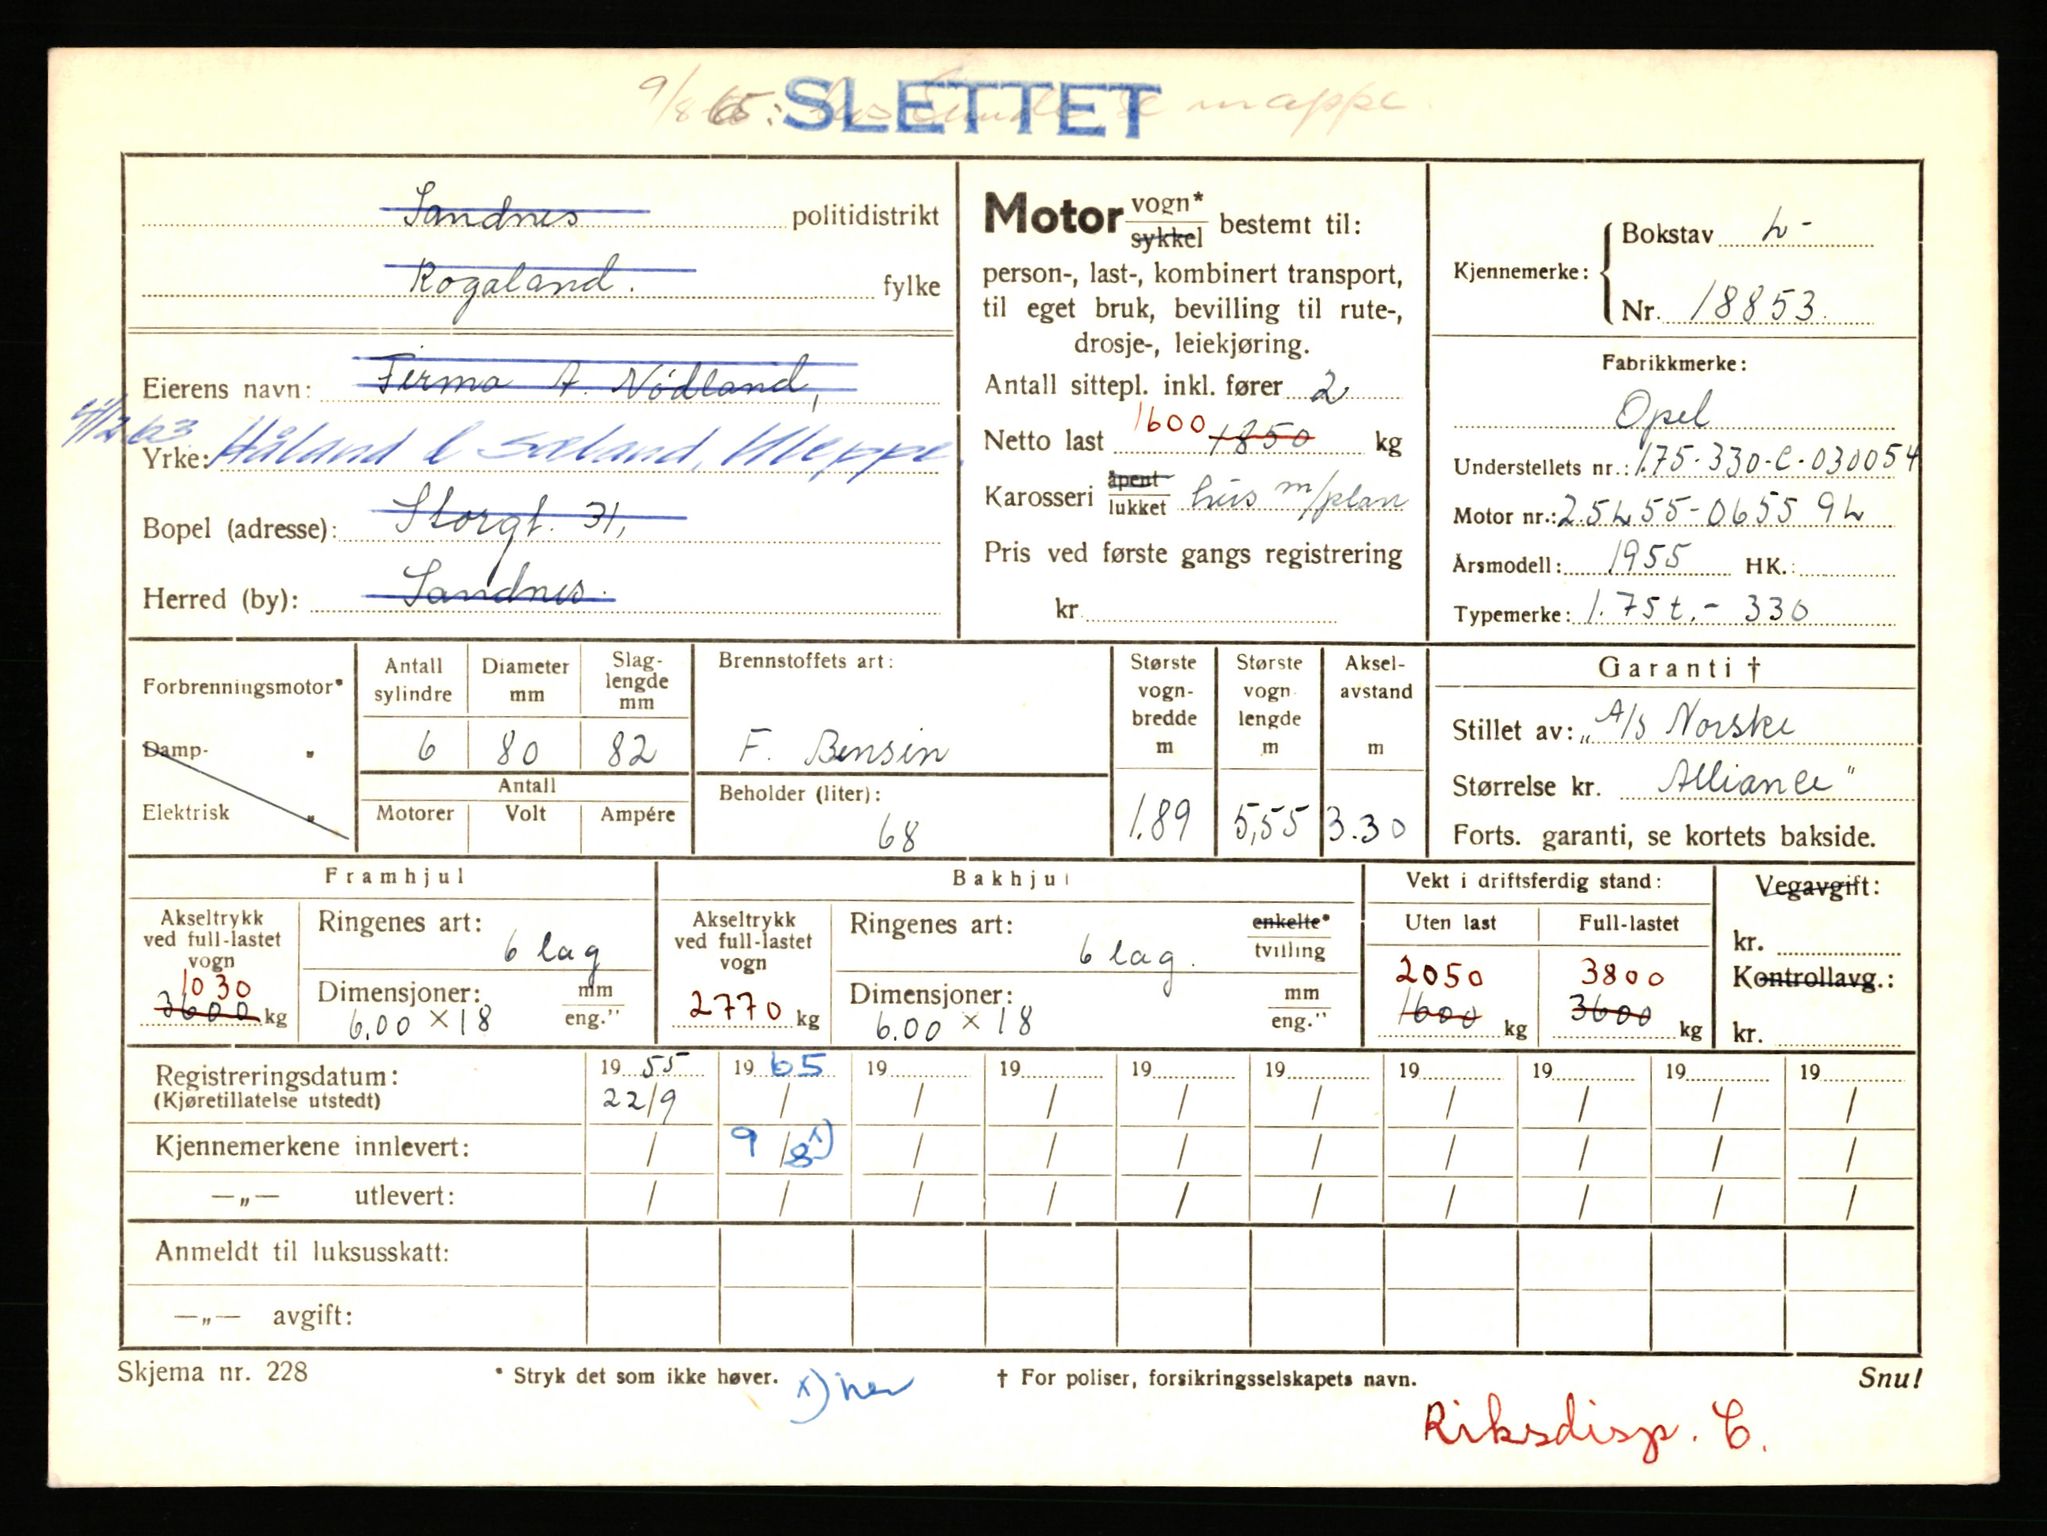 9/8 65: SLETTET mappe
Sandnes politidistrikt
Rogaland. fylke
Eierens navn: Firma A. Nödland,
4/12 63
Yrke: Håland & Sæland, Kleppe.
Bopel (adresse): Storgt. 31,
Herred (by): Sandnes.
Motor vogn* sykkel bestemt til:
person-, last-, kombinert transport,
til eget bruk, bevilling til rute-,
drosje-, leiekjøring.
Antall sittepl. inkl. fører 2
Netto last 1600 1850 kg
Karosseri åpent lukket hus m/plan
Pris ved første gangs registrering
kr.
Kjennemerke: Bokstav L-
Nr. 18853.
Fabrikkmerke:
Opel
Understellets nr.: 1.75-330-C-030054
Motor nr.: 2.5L55-0655 9L
Årsmodell: 1955 HK.:
Typemerke: 1.75 t. - 330
Forbrenningsmotor*
Damp- "
Elektrisk "
Antall sylindre 6
Diameter mm 80
Slag-lengde mm 82
Antall
Motorer Volt Ampére
Brennstoffets art:
F. Bensin
Beholder (liter):
68
Største vogn-bredde m 1.89
Største vogn lengde m 5,55
Aksel-avstand m 3.30
Garanti †
Stillet av: "A/S Norske
Størrelse kr. Alliance"
Forts. garanti, se kortets bakside.
Framhjul
Akseltrykk ved full-lastet vogn
1030
3600 kg
Ringenes art:
6 lag
Dimensjoner: mm eng."
6.00 × 18
Bakhjul
Akseltrykk ved full-lastet vogn
2770 kg
Ringenes art: enkelte* tvilling
6 lag.
Dimensjoner: mm eng."
6.00 × 18
Vekt i driftsferdig stand:
Uten last Full-lastet
2050 3800
1600 kg 3600 kg
Vegavgift:
kr.
Kontrollavg.:
kr.
Registreringsdatum: 19 55 19 65 19 19 19 19 19 19 19 19
(Kjøretillatelse utstedt) 22/9 / / / / / / / / /
Kjennemerkene innlevert: / 9/8 x) / / / / / / / /
—„— utlevert: / / / / / / / / / /
Anmeldt til luksusskatt:
—„— avgift:
Skjema nr. 228 * Stryk det som ikke høver. x) her † For poliser, forsikringsselskapets navn. Snu!
Riksdisp. C.